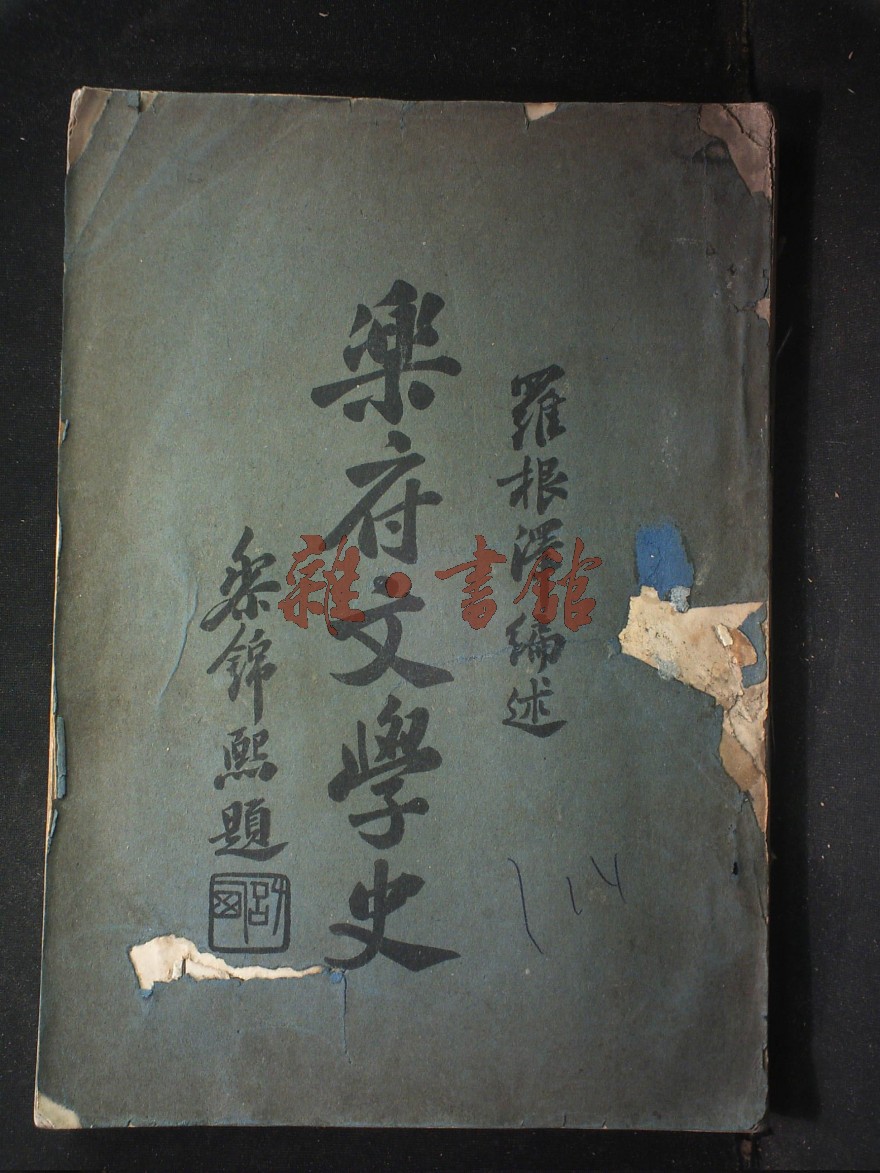 羅根澤編述
樂府文學史
黎錦熙題
雜·書館